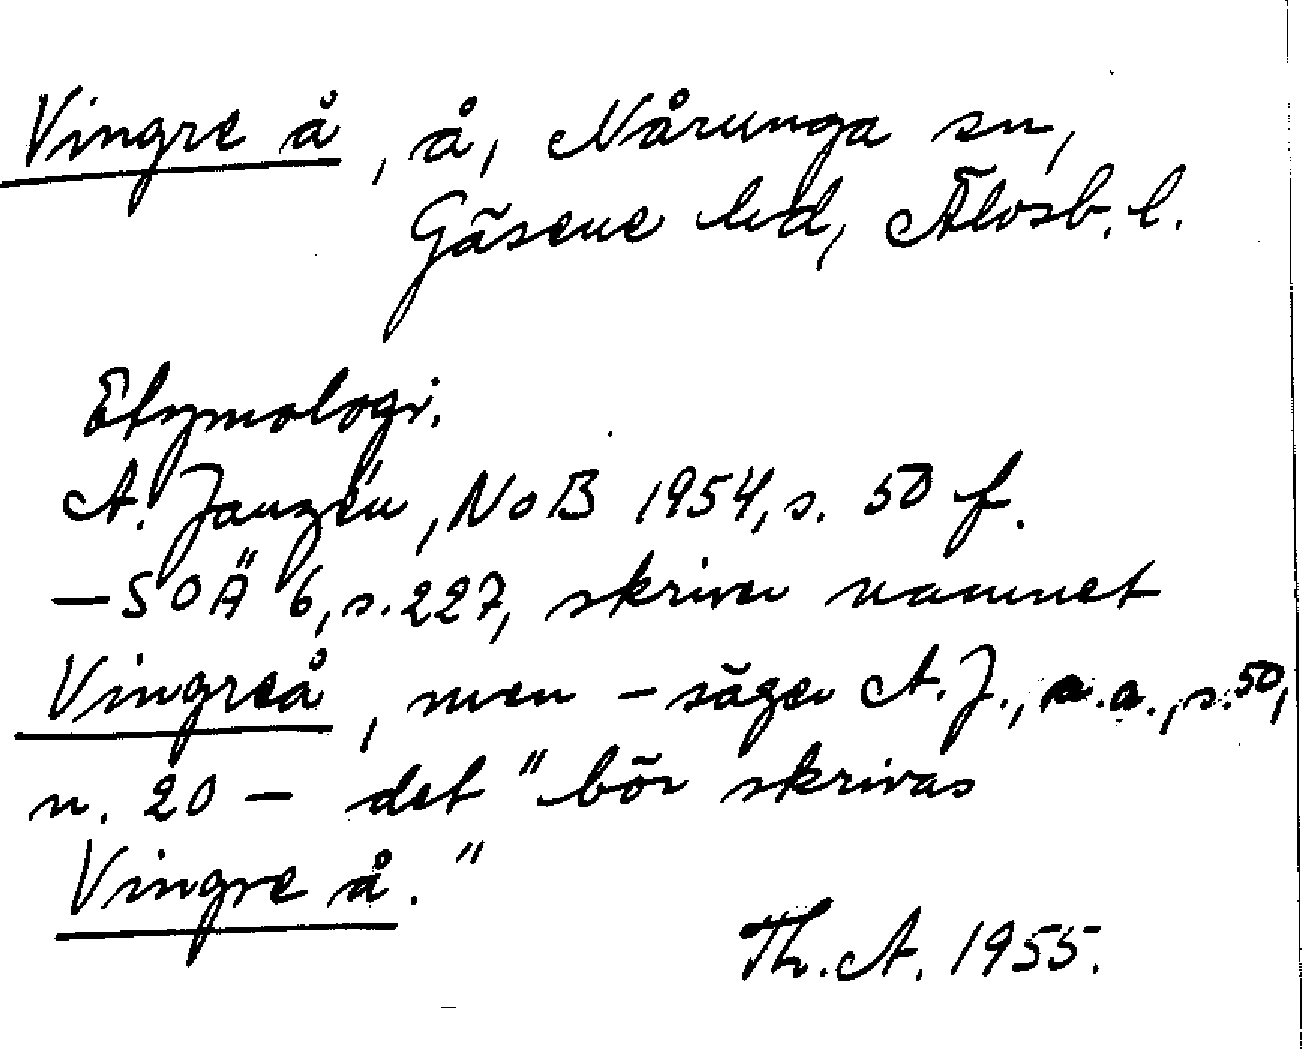 Vingre å, å, Nårunga sn,
Gäsene hd, Älvsb. l.
Etymologi.
A. Janzén, NoB 1954, s. 50 f.
— SOÄ 6, s. 227, skriver namnet
Vingreå, men – säger A. J., a. a., s. 50,
n. 20 — det "bör skrivas
Vingre å."
Th. A. 1955.